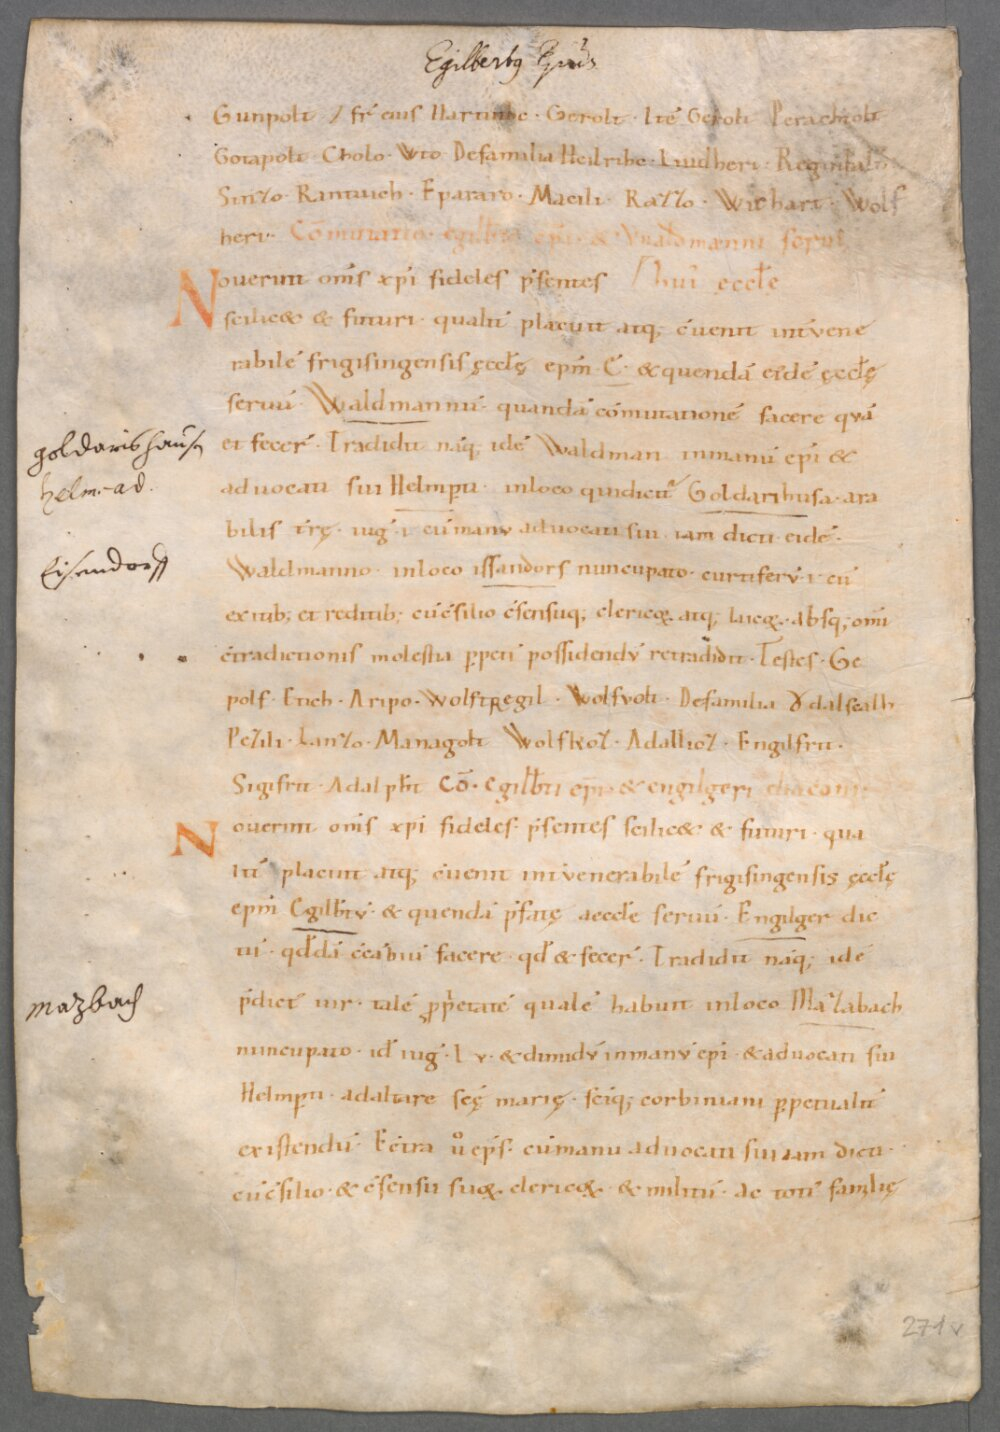 Egilbertꝰ Ep̄us
Gunpolt / fr̄ eius Hartuuic · Gerolt · Itē Gerolt Perachtolt
Gotapolt · Cholo · Vto · De familia Heilrihc · Liudheri · Reginhalm
Sinzo · Rantuich · Epararo · Macili · Razzo · Wichart · Wolf
heri · Cōmutatio · egilbti ep̄i · & Uualdmanni serui
Nouerint om̄s xp̄i fideles p̄sentes / hui' eccl̄e
scilic& & futuri · qualit̄ placuit atq; c̄uenit int̄ vene
rabilē frigisingensis ęccl̄ę ep̄m · E · & quendā eidē ęccl̄ę
seruū · Waldmannū · quandā cōmutationē facere quā
et fecer̄ · Tradidit nāq; idē Waldman in manū ep̄i &
aduocati sui Helmp̲ti · in loco qui dicit̄ Goldarihusa · ara
bilis tr̄ę · iuḡ · i · cū manv aduocati sui · iam dicti · eidē ·
Waldmanno · in loco issandorf nuncupato · curtiferv̄ · i · cū
exitib; et reditib; cū c̄silio c̄sensuq; clericoꝝ atq; laicoꝝ · absq; omī
c̄tradictionis molestia p̲peti possidendv̄ retradidit · Testes · Ge
polf · Etich · Aripo · Wolftregil · Wolfvolt · De familia Ȣdalscalh
Pezili · Lanzo · Managolt Wolfkoz · Adalhoz · Engilfrit ·
Sigifrit · Adalp̲ht Cō · Egilb̄ti ep̄i · & engilgeri diaconi
Nouerint om̄s xp̄i fideles · p̄sentes scilic& & futuri · qua
lit̄ placuit atq; c̄uenit int̄ venerabilē frigisingensis ęccl̄ę
ep̄m Egilb̄tv̄ · & quendā p̄fatę aeccl̄e seruū · Engilger dic
tū · qd̄dā c̄cābiū facere · qd̄ & fecer̄ · Tradidit nāq; idē
p̄dict' uir · talē p̲p̄etatē qualē habuit in loco Mazabach
nuncupato · id̄ iuḡ · L v · & dimidv̄ in manv̄ ep̄i · & aduocati sui
Helmp̲ti · ad altare sc̄ę marię · sc̄iq; corbiniani p̲petualit̄
existendū · E c̄tra u̾ ep̄s · cū manu aduocati sui iam dicti ·
cū c̄silio · & c̄sensu suoꝝ clericoꝝ · & militū · ac toti' familię
goldarishausn
helm.-ad.
Eisendorff
mazbach
271v